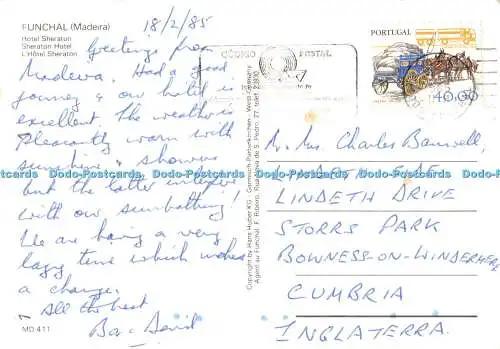 FUNCHAL (Madeira)
Hotel Sheraton
Sheraton Hotel
L'Hôtel Sheraton
18/2/85
Greetings from
Madeira. Had a good
journey & our hotel is
excellent. The weather is
pleasantly warm with
sunshine & showers
but the latter interfere
with our sunbathing!
We are having a very
lazy time which makes
a change.
All the best
David
MD 411
Copyright by Hans Huber KG - Garmisch-Partenkirchen - West-Germany
Agent au Funchal: F. Ribeiro, Rua Nova de S. Pedro, 27 telef. 23930
CÓDIGO POSTAL
PORTUGAL
40.00
Mr. Mrs. Charles Banwell,
LINDETH DRIVE
STORRS PARK
BOWNESS-ON-WINDERMERE,
CUMBRIA
INGLATERRA.
Dodo-Postcards Dodo-Postcards Dodo-Postcards Dodo-Postcards Dodo-Postcards